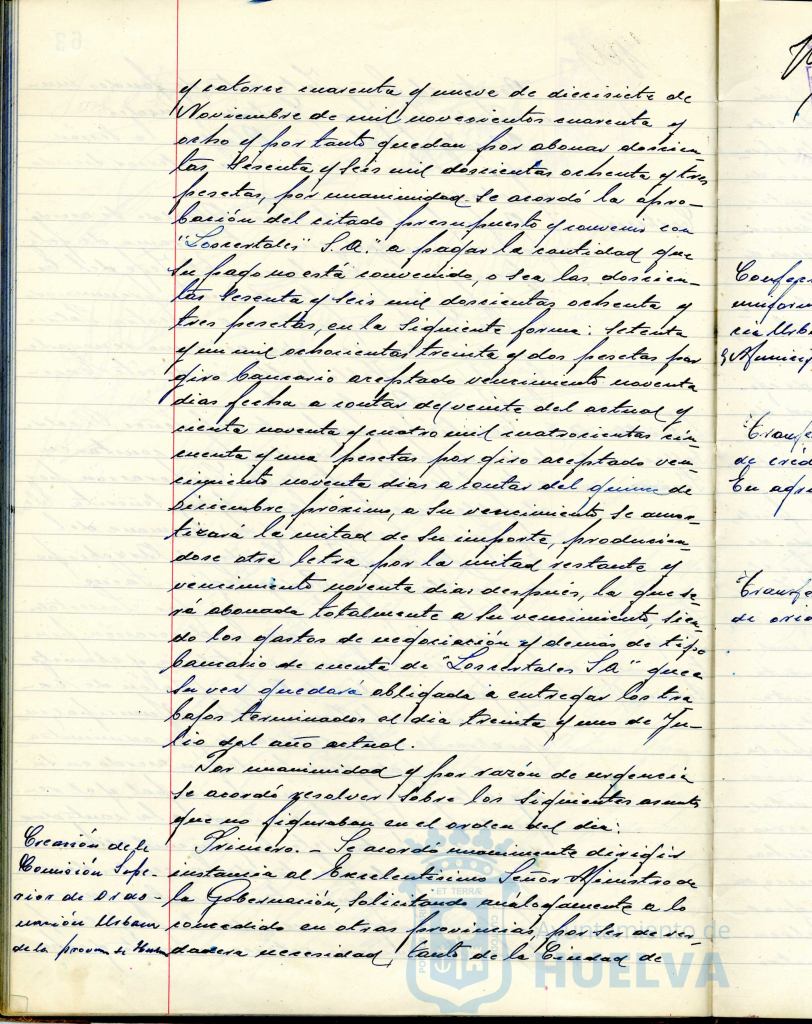 y catorce cuarenta y nueve de diecisiete de
Noviembre de mil novecientos cuarenta y
ocho y por tanto quedan por abonar doscien-
tas sesenta y seis mil doscientas ochenta y tres
pesetas, por unanimidad se acordó la apro-
bación del citado presupuesto y convenir con
"Loscertales" S.A." a pagar la cantidad que
su pago no está convenido, o sea las doscien-
tas sesenta y seis mil doscientas ochenta y
tres pesetas, en la siguiente forma: Setenta
y un mil ochocientas treinta y dos pesetas por
giro bancario aceptado vencimiento noventa
dias fecha a contar del veinte del actual y
ciento noventa y cuatro mil cuatrocientas cin-
cuenta y una pesetas por giro aceptado ven-
cimiento noventa dias a contar del quince de
Diciembre próximo, a su vencimiento se amor-
tizará la mitad de su importe, producien-
dose otra letra por la mitad restante y
vencimiento noventa dias después, la que se-
rá abonada totalmente a su vencimiento, sien-
do los gastos de negociación y demás de tipo
bancario de cuenta de "Loscertales SA" que a
su vez quedará obligada a entregar los tra
bajos terminados el dia treinta y uno de Ju-
lio del año actual.
Por unanimidad y por razón de urgencia
se acordó resolver sobre los siguientes asuntos
que no figuraban en el orden del dia:
Creación de la
Comisión Supe-
rior de Orde-
nación Urbana
de la provin de Huelva
Primero.- Se acordó unanimemente dirigir
instancia al Excelentísimo Señor Ministro de
la Gobernación, solicitando análogamente a lo
concedido en otras provincias, por la de ver-
dadera necesidad, tanto de la Ciudad de
Ayuntamiento de
HUELVA
ET TERRÆ
uniform
cia Urb
y Munici
Transfe
de créd
En agre
Transfe
de créd